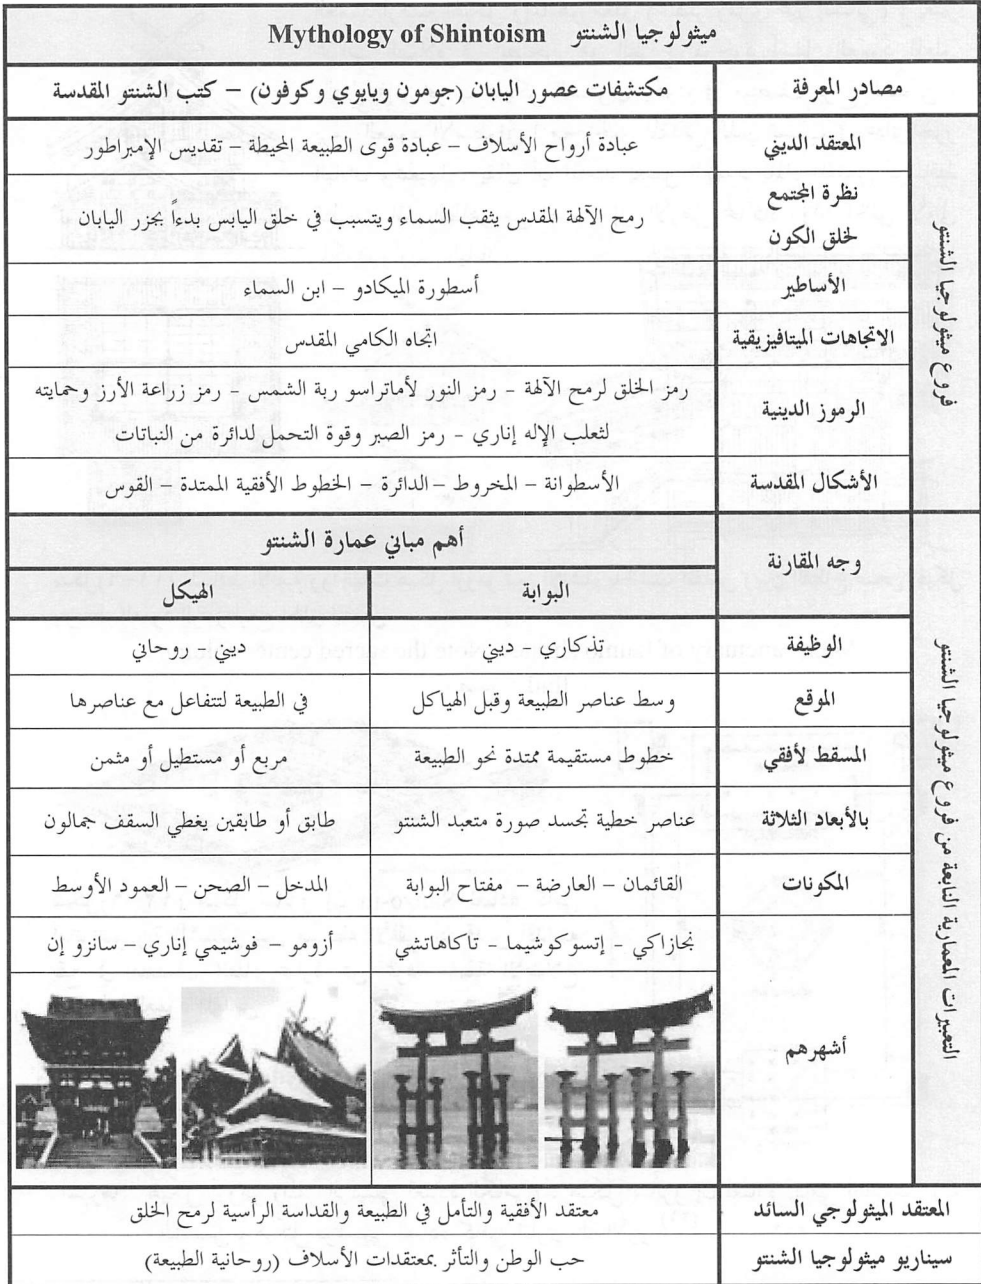 ميثولوجيا الشنتو Mythology of Shintoism
مصادر المعرفة
مكتشفات عصور اليابان (جومون ويايوي وكوفون) – كتب الشنتو المقدسة
فروع ميثولوجيا الشنتو
المعتقد الديني
عبادة أرواح الأسلاف – عبادة قوى الطبيعة المحيطة – تقديس الإمبراطور
نظرة المجتمع
لخلق الكون
رمح الآلهة المقدس يثقب السماء ويتسبب في خلق اليابس بدءاً بجزر اليابان
الأساطير
أسطورة الميكادو – ابن السماء
الاتجاهات الميتافيزيقية
اتجاه الكامي المقدس
الرموز الدينية
رمز الخلق لرمح الآلهة - رمز النور لأماتراسو ربة الشمس - رمز زراعة الأرز وحمايته
لثعلب الإله إناري - رمز الصبر وقوة التحمل لدائرة من النباتات
الأشكال المقدسة
الأسطوانة – المخروط –الدائرة – الخطوط الأفقية الممتدة – القوس
التعبيرات المعمارية التابعة من فروع ميثولوجيا الشنتو
وجه المقارنة
أهم مباني عمارة الشنتو
البوابة
الهيكل
الوظيفة
تذكاري - ديني
ديني - روحاني
الموقع
وسط عناصر الطبيعة وقبل الهياكل
في الطبيعة لتتفاعل مع عناصرها
المسقط لأفقي
خطوط مستقيمة ممتدة نحو الطبيعة
مربع أو مستطيل أو مثمن
بالأبعاد الثلاثة
عناصر خطية تجسد صورة متعبد الشنتو
طابق أو طابقين يغطي السقف جمالون
المكونات
القائمان – العارضة – مفتاح البوابة
المدخل – الصحن – العمود الأوسط
أشهرهم
نجازاكي - إتسوكوشيما - تاكاهاتشي
أزومو – فوشيمي إناري – سانزو إن
المعتقد الميثولوجي السائد
معتقد الأفقية والتأمل في الطبيعة والقداسة الرأسية لرمح الخلق
سيناريو ميثولوجيا الشنتو
حب الوطن والتأثر بمعتقدات الأسلاف (روحانية الطبيعة)